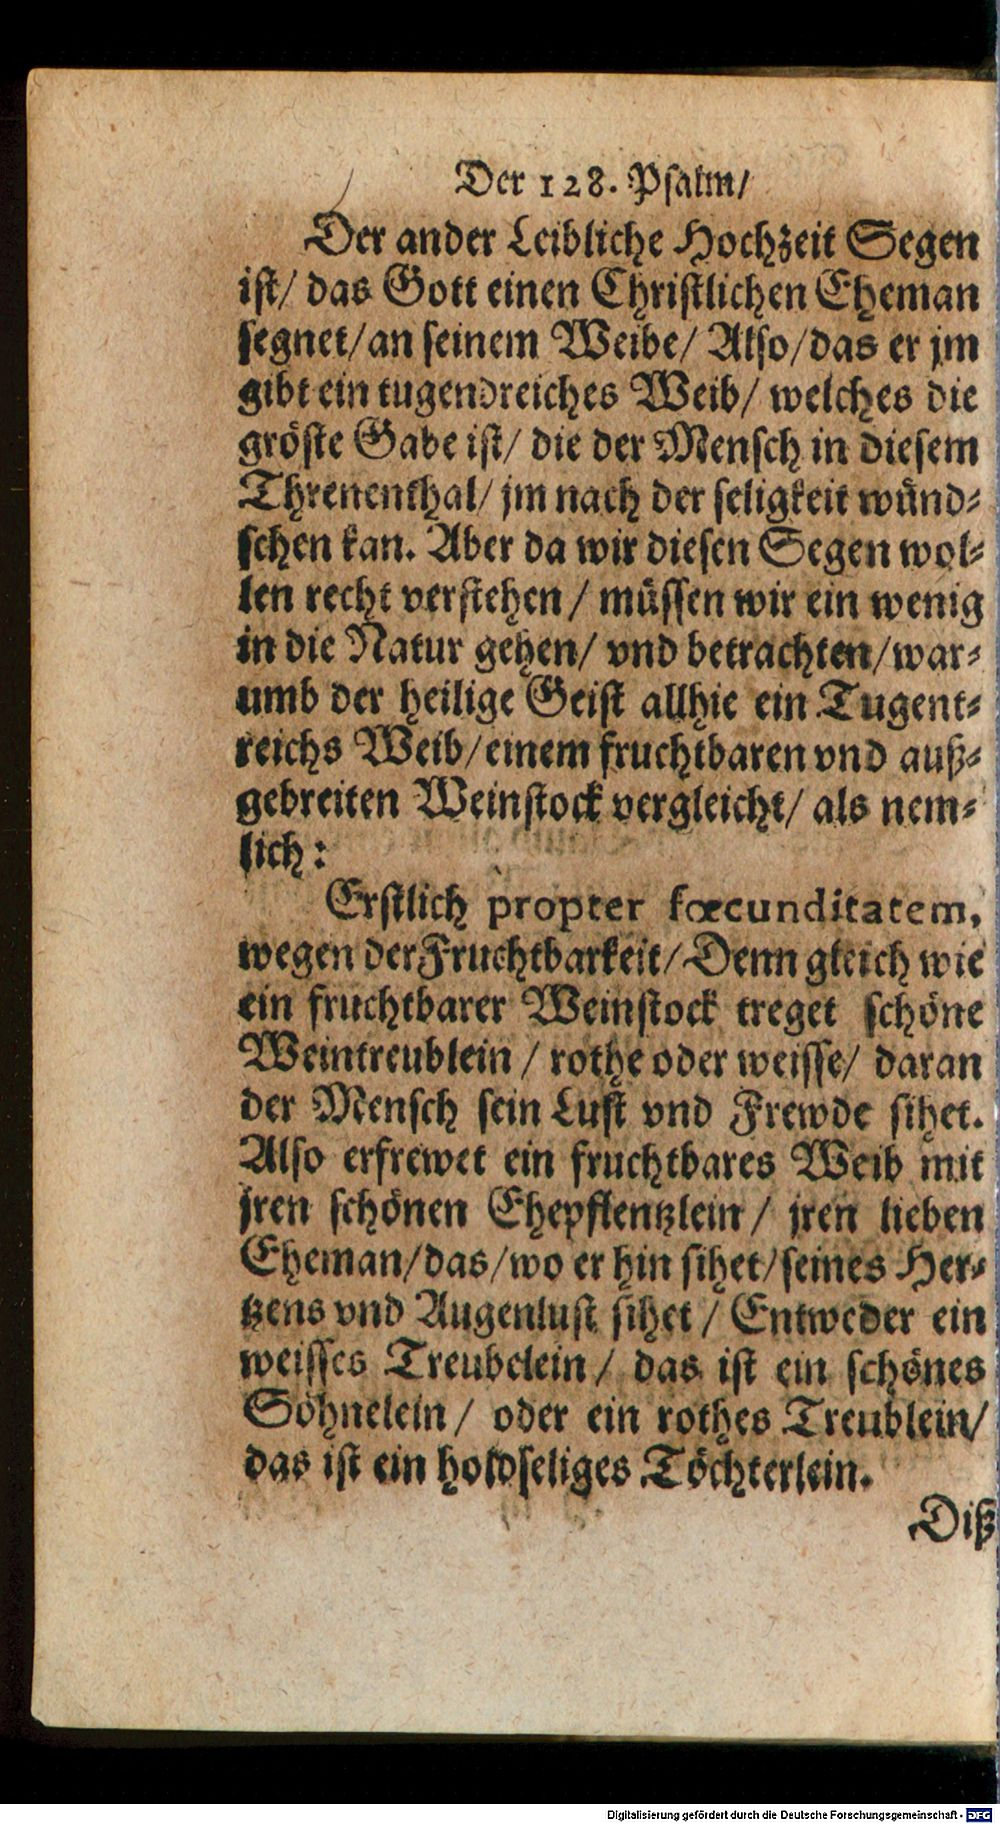 Der 128. Psalm/
Der ander Leibliche Hochzeit Segen
ist/ das Gott einen Christlichen Eheman
segnet/ an seinem Weibe/ Also/ das er jm
gibt ein tugendreiches Weib/ welches die
gröste Gabe ist/ die der Mensch in diesem
Threnenthal/ jm nach der seligkeit wünd⸗
schen kan. Aber da wir diesen Segen wol⸗
len recht verstehen/ müssen wir ein wenig
in die Natur gehen/ vnd betrachten/ war⸗
umb der heilige Geist allhie ein Tugent⸗
reichs Weib/ einem fruchtbaren vnd auß⸗
gebreiten Weinstock vergleicht/ als nem⸗
lich:
Erstlich propter fœcunditatem,
wegen der Fruchtbarkeit/ Denn gleich wie
ein fruchtbarer Weinstock treget schöne
Weintreublein/ rothe oder weisse/ daran
der Mensch sein Lust vnd Frewde sihet.
Also erfrewet ein fruchtbares Weib mit
jren schönen Ehepflentzlein/ jren lieben
Eheman/ das/ wo er hin sihet/ seines Her⸗
tzens vnd Augenlust sihet/ Entweder ein
weisses Treubelein/ das ist ein schönes
Söhnelein/ oder ein rothes Treublein/
das ist ein holdseliges Töchterlein.
Diß
Digitalisierung gefördert durch die Deutsche Forschungsgemeinschaft - DFG